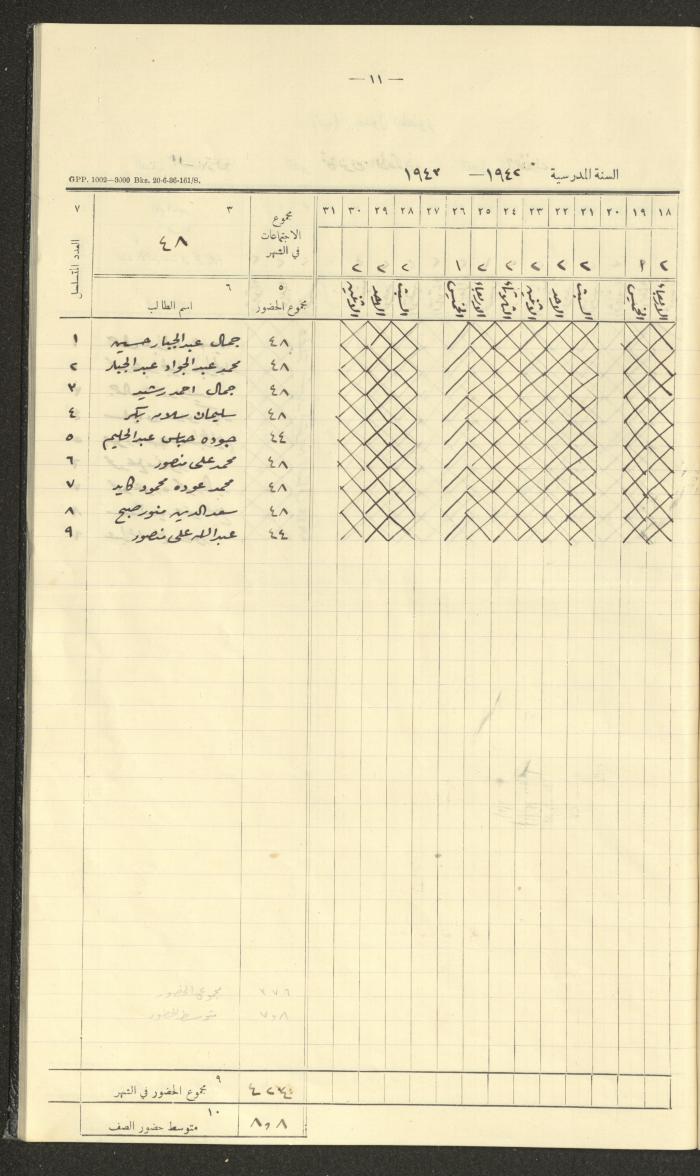 — ١١ —
السنة المدرسية ١٩٤٢ — ١٩٤٣
GPP. 1002—3000 Bks. 20-6-36-161/S.
١٨ ١٩ ٢٠ ٢١ ٢٢ ٢٣ ٢٤ ٢٥ ٢٦ ٢٧ ٢٨ ٢٩ ٣٠ ٣١ مجموع الاجتماعات في الشهر ٣ ٧
٢ ١ ٢ ٢ ٢ ٢ ٢ ١ ٢ ٢ ٢ ٤٨ العدد المتسلسل
الاربعاء الخميس السبت الاحد الاثنين الثلاثاء الاربعاء الخميس السبت الاحد الاثنين
٥ مجموع الحضور ٦ اسم الطالب
٤٨ جمال عبد الجبار حسين ١
٤٨ محمد عبد الجواد عبد الجبار ٢
٤٨ جمال احمد رشيد ٣
٤٨ سليمان سلامه بكر ٤
٤٤ جوده عباس عبد الحليم ٥
٤٨ محمد علي منصور ٦
٤٨ محمد عوده محمود كايد ٧
٤٨ سعد الدين منور صبح ٨
٤٤ عبد الله علي منصور ٩
مجموع الحضور
متوسط الحضور ٨و٧
٩ مجموع الحضور في الشهر ٤٢٤
١٠ متوسط حضور الصف ٨و٨